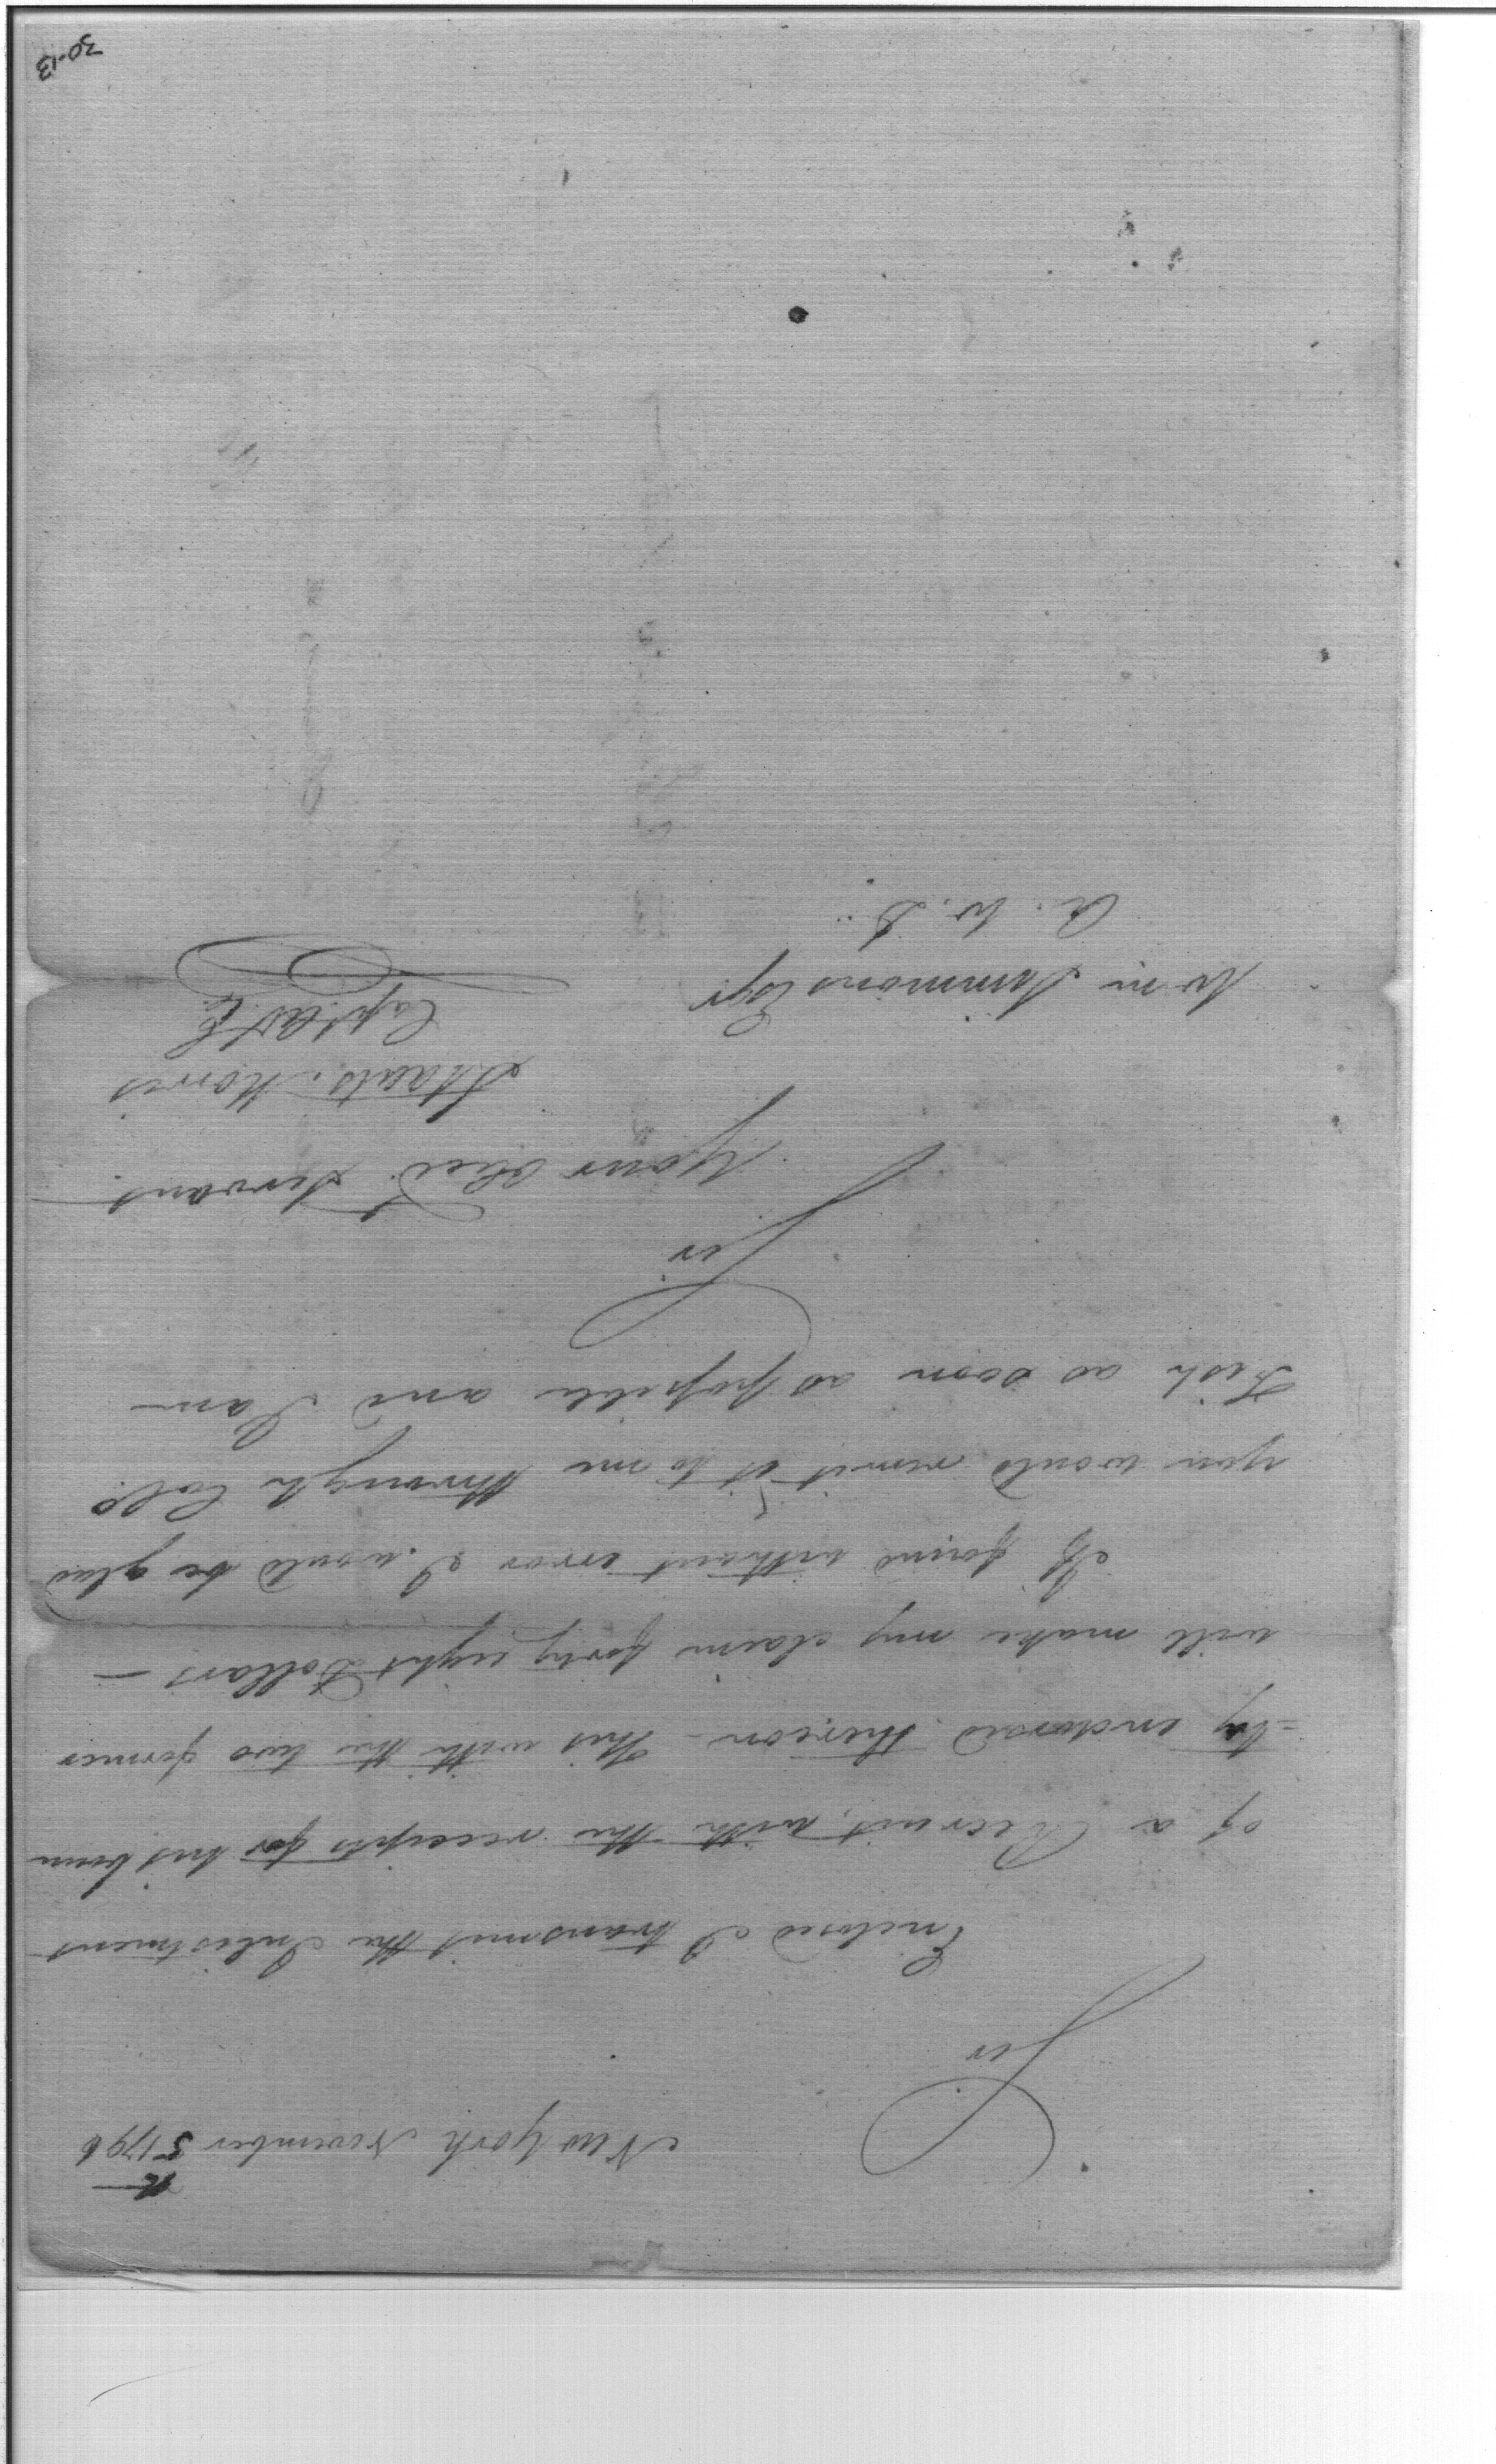 New York November 5 1796
Sir
Enclosed I transmit the Inlistment
of a Recruit, with the receipts for his boun
-ty endorsed thereon - This with the two former
will make my claim forty eight Dollars -
If found without error I would be glad
you would remit it to me through Col.º
Fish as soon as possible and I am
Sir
Your Obed. Servant
Staats. Morris
Capt. A&E
Wm Simmons Esqr
A. W. D.
30-13